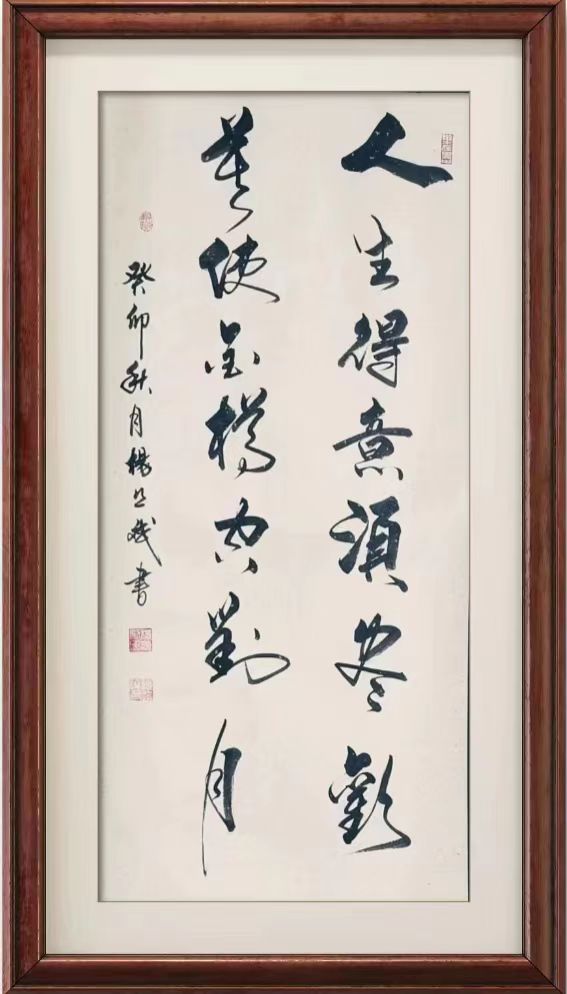 人生得意須尽歡
莫使金樽空對月
癸卯秋月楊书